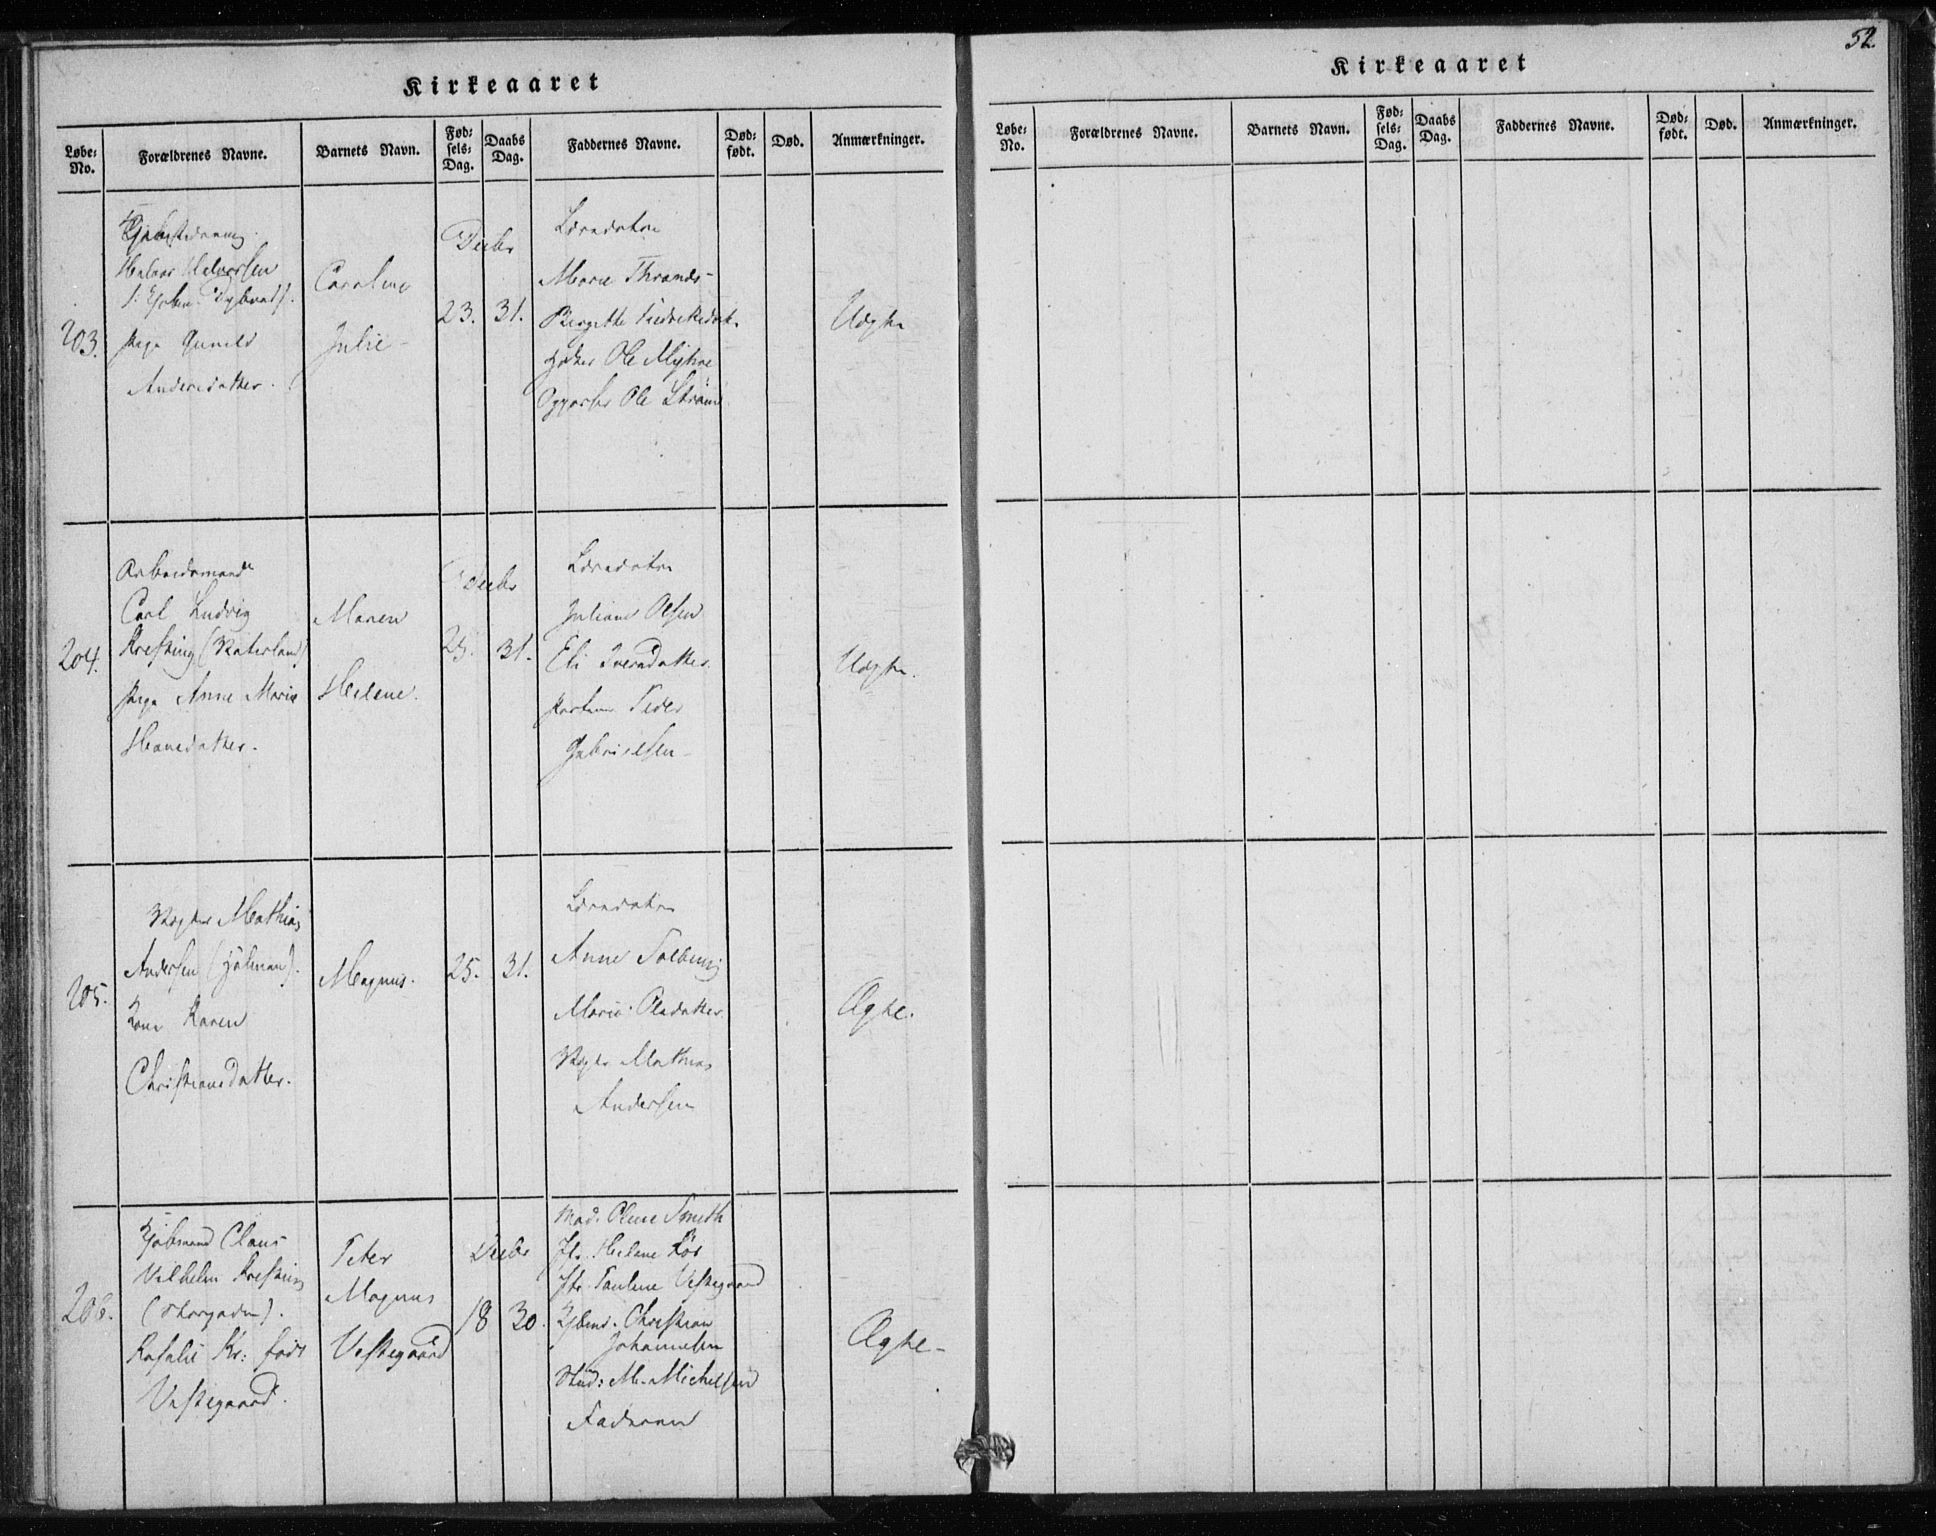 Kirkeaaret
Løbe-
No.
Forældrenes Navne.
Barnets Navn.
Fød-
sels-
Dag.
Daabs
Dag.
Faddernes Navne.
Død-
født.
Død.
Anmærkninger.
203.
Halvor Halvorsen
pige Gunild
Andersdatter.
Caroline
Julie
Decbr
23.
31.
Marie Thrands-
Ole
Ole Strøm
Udgte
204.
Arbeidsmand
Carl Ludvig
Kresting (Vaterland)
pige Anne Marie
Hansdatter.
Maren
Helene.
Decbr
25.
31.
Juliane Olsen
Eli Iversdatter.
Peder
Gabrielsen
Udgte.
205.
Vægter Mathias
Andersen
Kone Karen
Christiansdatter.
Magnus.
25.
31.
Anne Solberg
Marie Olsdatter.
Vægter Mathias
Andersen
Ægte.
206.
Kjøbmand Claus
Vilhelm Kresting
(Storgaden).
Rosalie Kr: født
Vestegaard.
Peter
Magnus
Vestegaard
Decbr
18
30.
Mad. Oline Smith
Jfr. Helene
Jfr. Pauline Vestegaard
Kjbmd. Christian
Johannesen
Stud: M. Michelsen
Faderen
Ægte
52
Kirkeaaret
Løbe-
No.
Forældrenes Navne.
Barnets Navn.
Fød-
sels-
Dag.
Daabs
Dag.
Faddernes Navne.
Død-
født.
Død.
Anmærkninger.